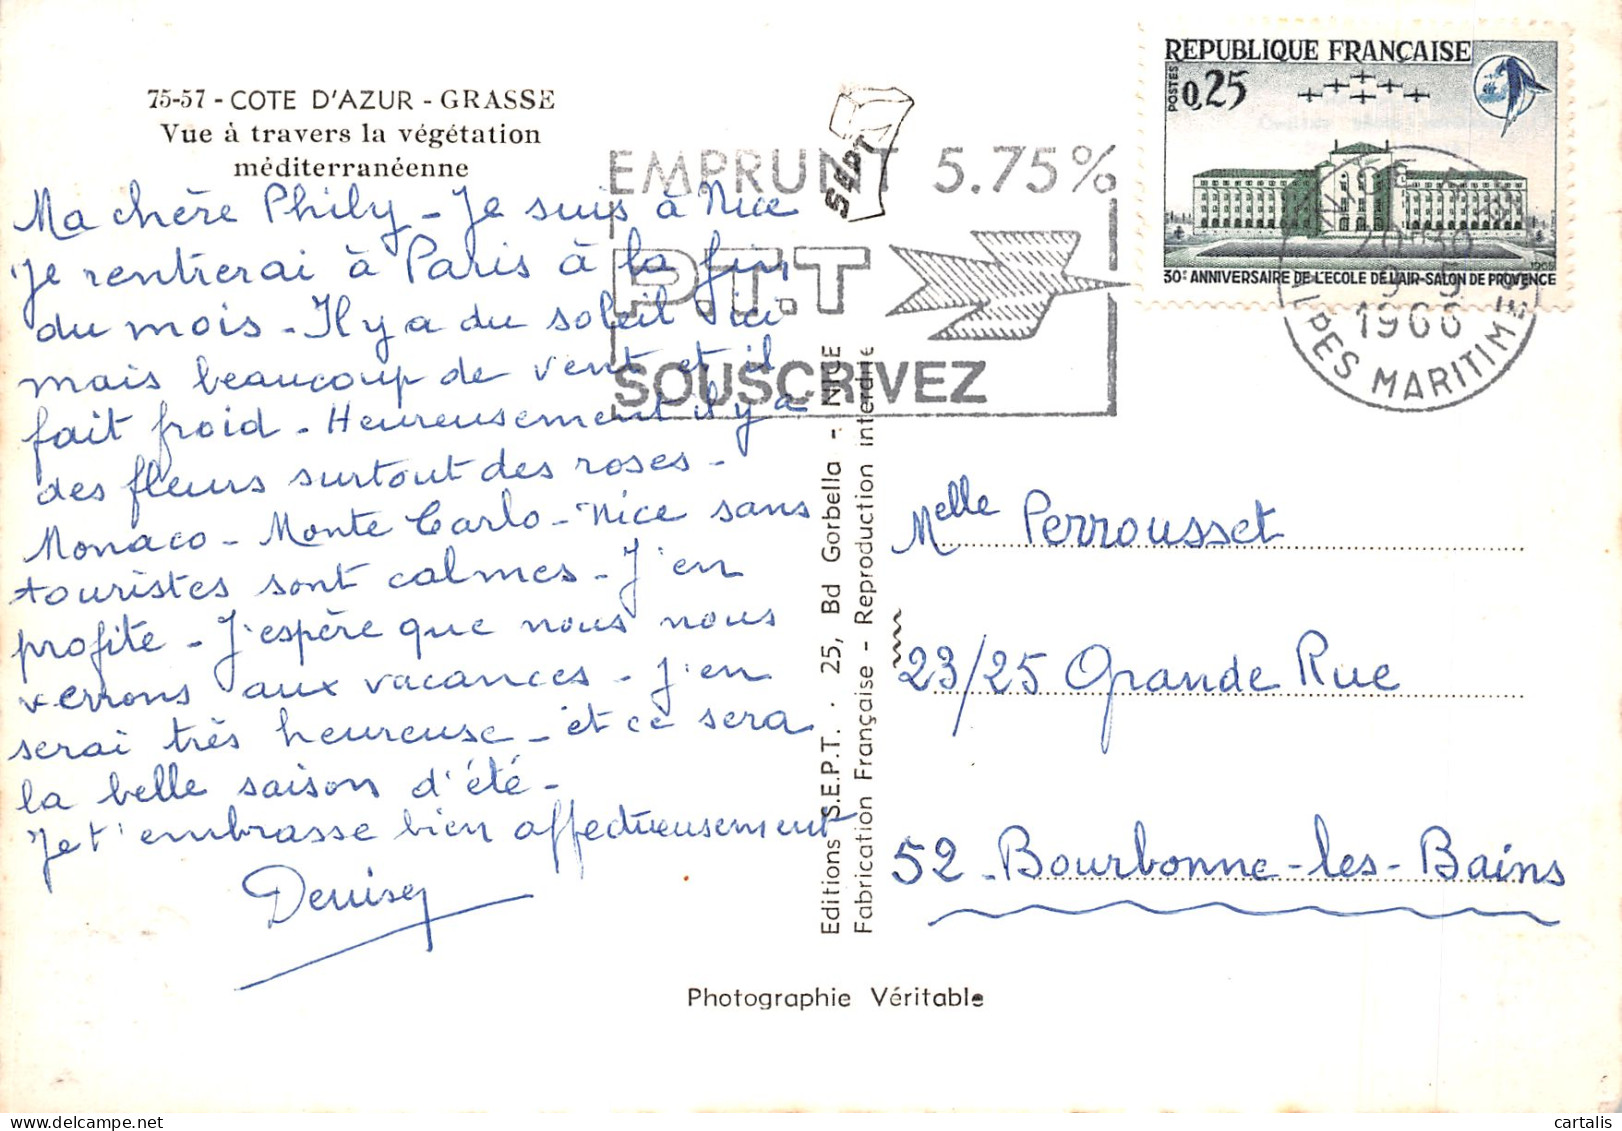 75-57 - COTE D'AZUR - GRASSE
Vue à travers la végétation
méditerranéenne
Ma chère Phily - Je suis à Nice
Je rentrerai à Paris à la fin
du mois - Il y a du soleil ici
mais beaucoup de vent et il
fait froid - Heureusement il y a
des fleurs surtout des roses -
Monaco - Monte Carlo - Nice sans
touristes sont calmes - J'en
profite - J'espère que nous nous
verrons aux vacances - J'en
serai très heureuse - et ce sera
la belle saison d'été -
Je t'embrasse bien affectueusement
Denise
EMPRUNT 5.75%
P.T.T
SOUSCRIVEZ
SEPT
Editions S.E.P.T. - 25, Bd Gorbella - NICE
Fabrication Française - Reproduction interdite
REPUBLIQUE FRANÇAISE
POSTES
0,25
1965
30E ANNIVERSAIRE DE L'ECOLE DE L'AIR-SALON DE PROVENCE
NICE
1966
ALPES MARITIMES
Melle Perrousset
23/25 Grande Rue
52 - Bourbonne-les-Bains
Photographie Véritable
cartalis